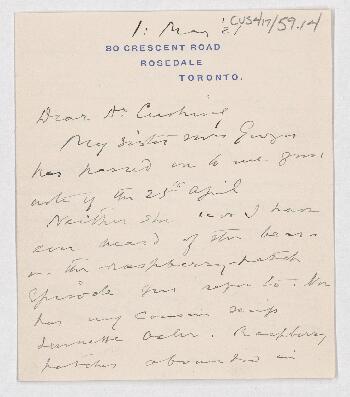 1: May '21
CUS417/59.14
80 CRESCENT ROAD
ROSEDALE
TORONTO.
Dear Dr Cushing
My sister Mrs Gwyn
has passed on to me your
note of the 25th April
Neither she nor I have
ever heard of the bear
in the raspberry-patch
Episode you refer to. Nor
has my cousin Miss
Jennette Osler. Raspberry
patches abounded in